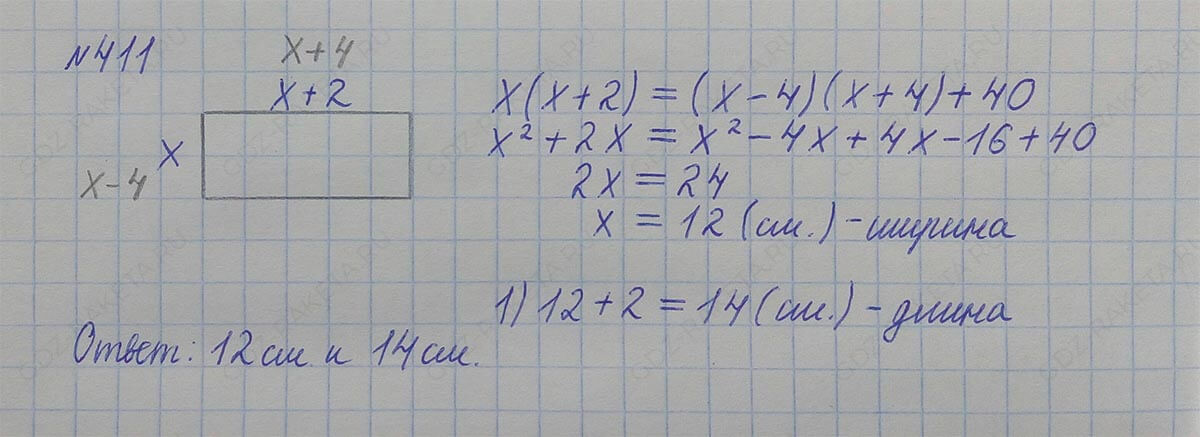 №411
x+4
x+2
x
x-4
x(x+2)=(x-4)(x+4)+40
x²+2x=x²-4x+4x-16+40
2x=24
x=12(см.)-ширина
1)12+2=14(см.)-длина
Ответ: 12см и 14см.